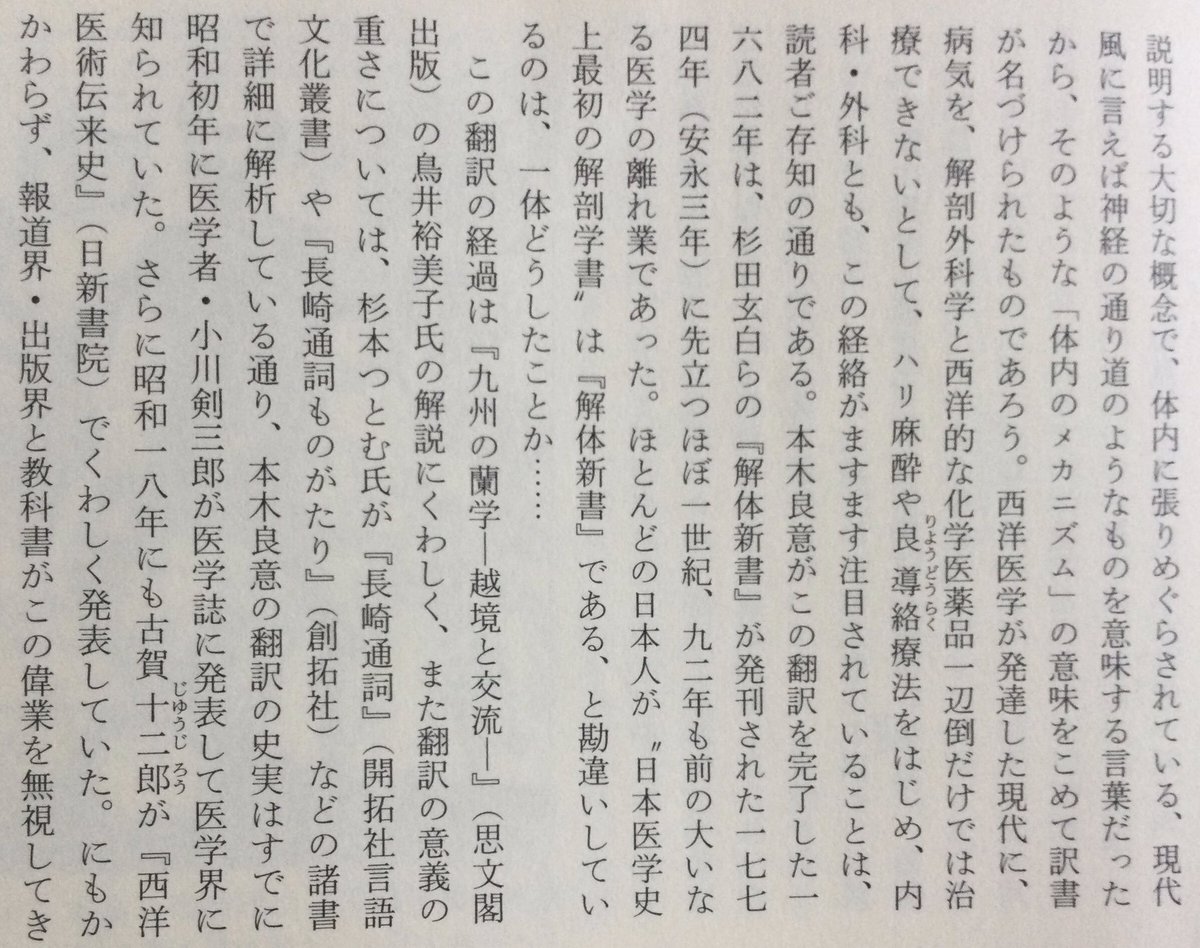 説明する大切な概念で、体内に張りめぐらされている、現代
風に言えば神経の通り道のようなものを意味する言葉だった
から、そのような「体内のメカニズム」の意味をこめて訳書
が名づけられたものであろう。西洋医学が発達した現代に、
病気を、解剖外科学と西洋的な化学医薬品一辺倒だけでは治
療できないとして、ハリ麻酔や良導絡療法をはじめ、内
りょうどうらく
科・外科とも、この経絡がますます注目されていることは、
読者ご存知の通りである。本木良意がこの翻訳を完了した一
六八二年は、杉田玄白らの『解体新書』が発刊された一七七
四年（安永三年）に先立つほぼ一世紀、九二年も前の大いな
る医学の離れ業であった。ほとんどの日本人が〝日本医学史
上最初の解剖学書〟は『解体新書』である、と勘違いしてい
るのは、一体どうしたことか……
この翻訳の経過は『九州の蘭学―越境と交流―』（思文閣
出版）の鳥井裕美子氏の解説にくわしく、また翻訳の意義の
重さについては、杉本つとむ氏が『長崎通詞』（開拓社言語
文化叢書）や『長崎通詞ものがたり』（創拓社）などの諸書
で詳細に解析している通り、本木良意の翻訳の史実はすでに
昭和初年に医学者・小川剣三郎が医学誌に発表して医学界に
知られていた。さらに昭和一八年にも古賀十二郎が『西洋
じゅうじろう
医術伝来史』（日新書院）でくわしく発表していた。にもか
かわらず、報道界・出版界と教科書がこの偉業を無視してき